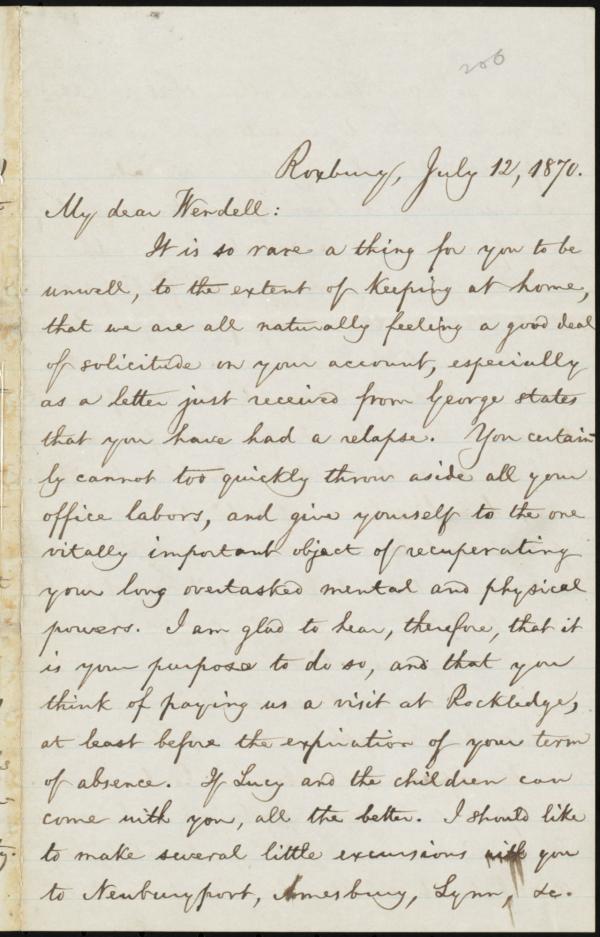 206
Roxbury, July 12, 1870.
My dear Wendell:
It is so rare a thing for you to be
unwell, to the extent of keeping at home,
that we are all naturally feeling a good deal
of solicitude on your account, especially
as a letter just received from George states
that you have had a relapse. You certain-
ly cannot too quickly throw aside all your
office labors, and give yourself to the one
vitally important object of recuperating
your long overtasked mental and physical
powers. I am glad to hear, therefore, that it
is your purpose to do so, and that you
think of paying us a visit at Rockledge,
at least before the expiration of your term
of absence. If Lucy and the children can
come with you, all the better. I should like
to make several little excursions with you
to Newburyport, Amesbury, Lynn, &c.